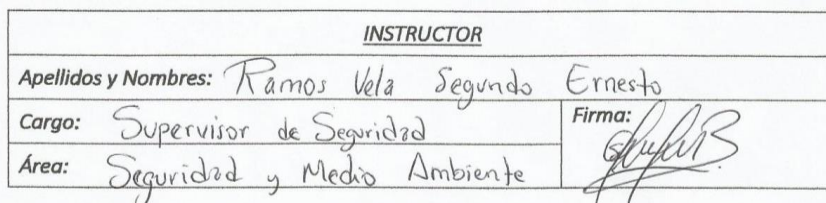 INSTRUCTOR
Apellidos y Nombres: Ramos Vela Segundo Ernesto
Cargo: Supervisor de Seguridad
Firma:
Área: Seguridad y Medio Ambiente